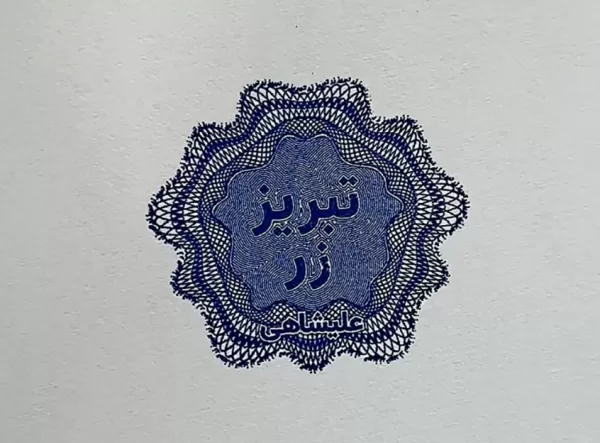 تبریز
زر
علیشاهی